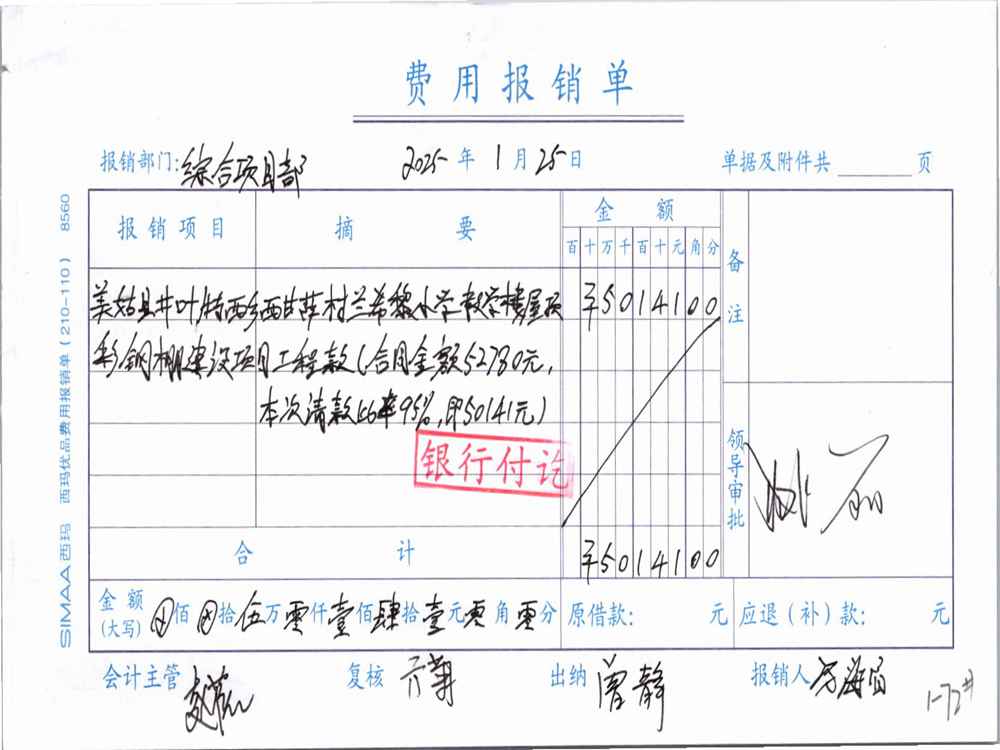 费用报销单
报销部门:综合项目部 2025年1月25日 单据及附件共 页
报销项目 摘要 金额 备注
百十万千百十元角分
美姑县井叶特西乡西甘萨村兰希黎小学教学楼屋顶 ¥5014100
彩钢棚建设项目工程款(合同金额52780元,
本次请款比率95%,即50141元)
银行付讫
领导审批
合计 ¥5014100
金额(大写) 佰 拾伍万零仟壹佰肆拾壹元零角零分 原借款: 元 应退(补)款: 元
会计主管 复核 出纳 曾静 报销人
1-72#
SIMAA西玛 西玛优品费用报销单(210-110) 8560